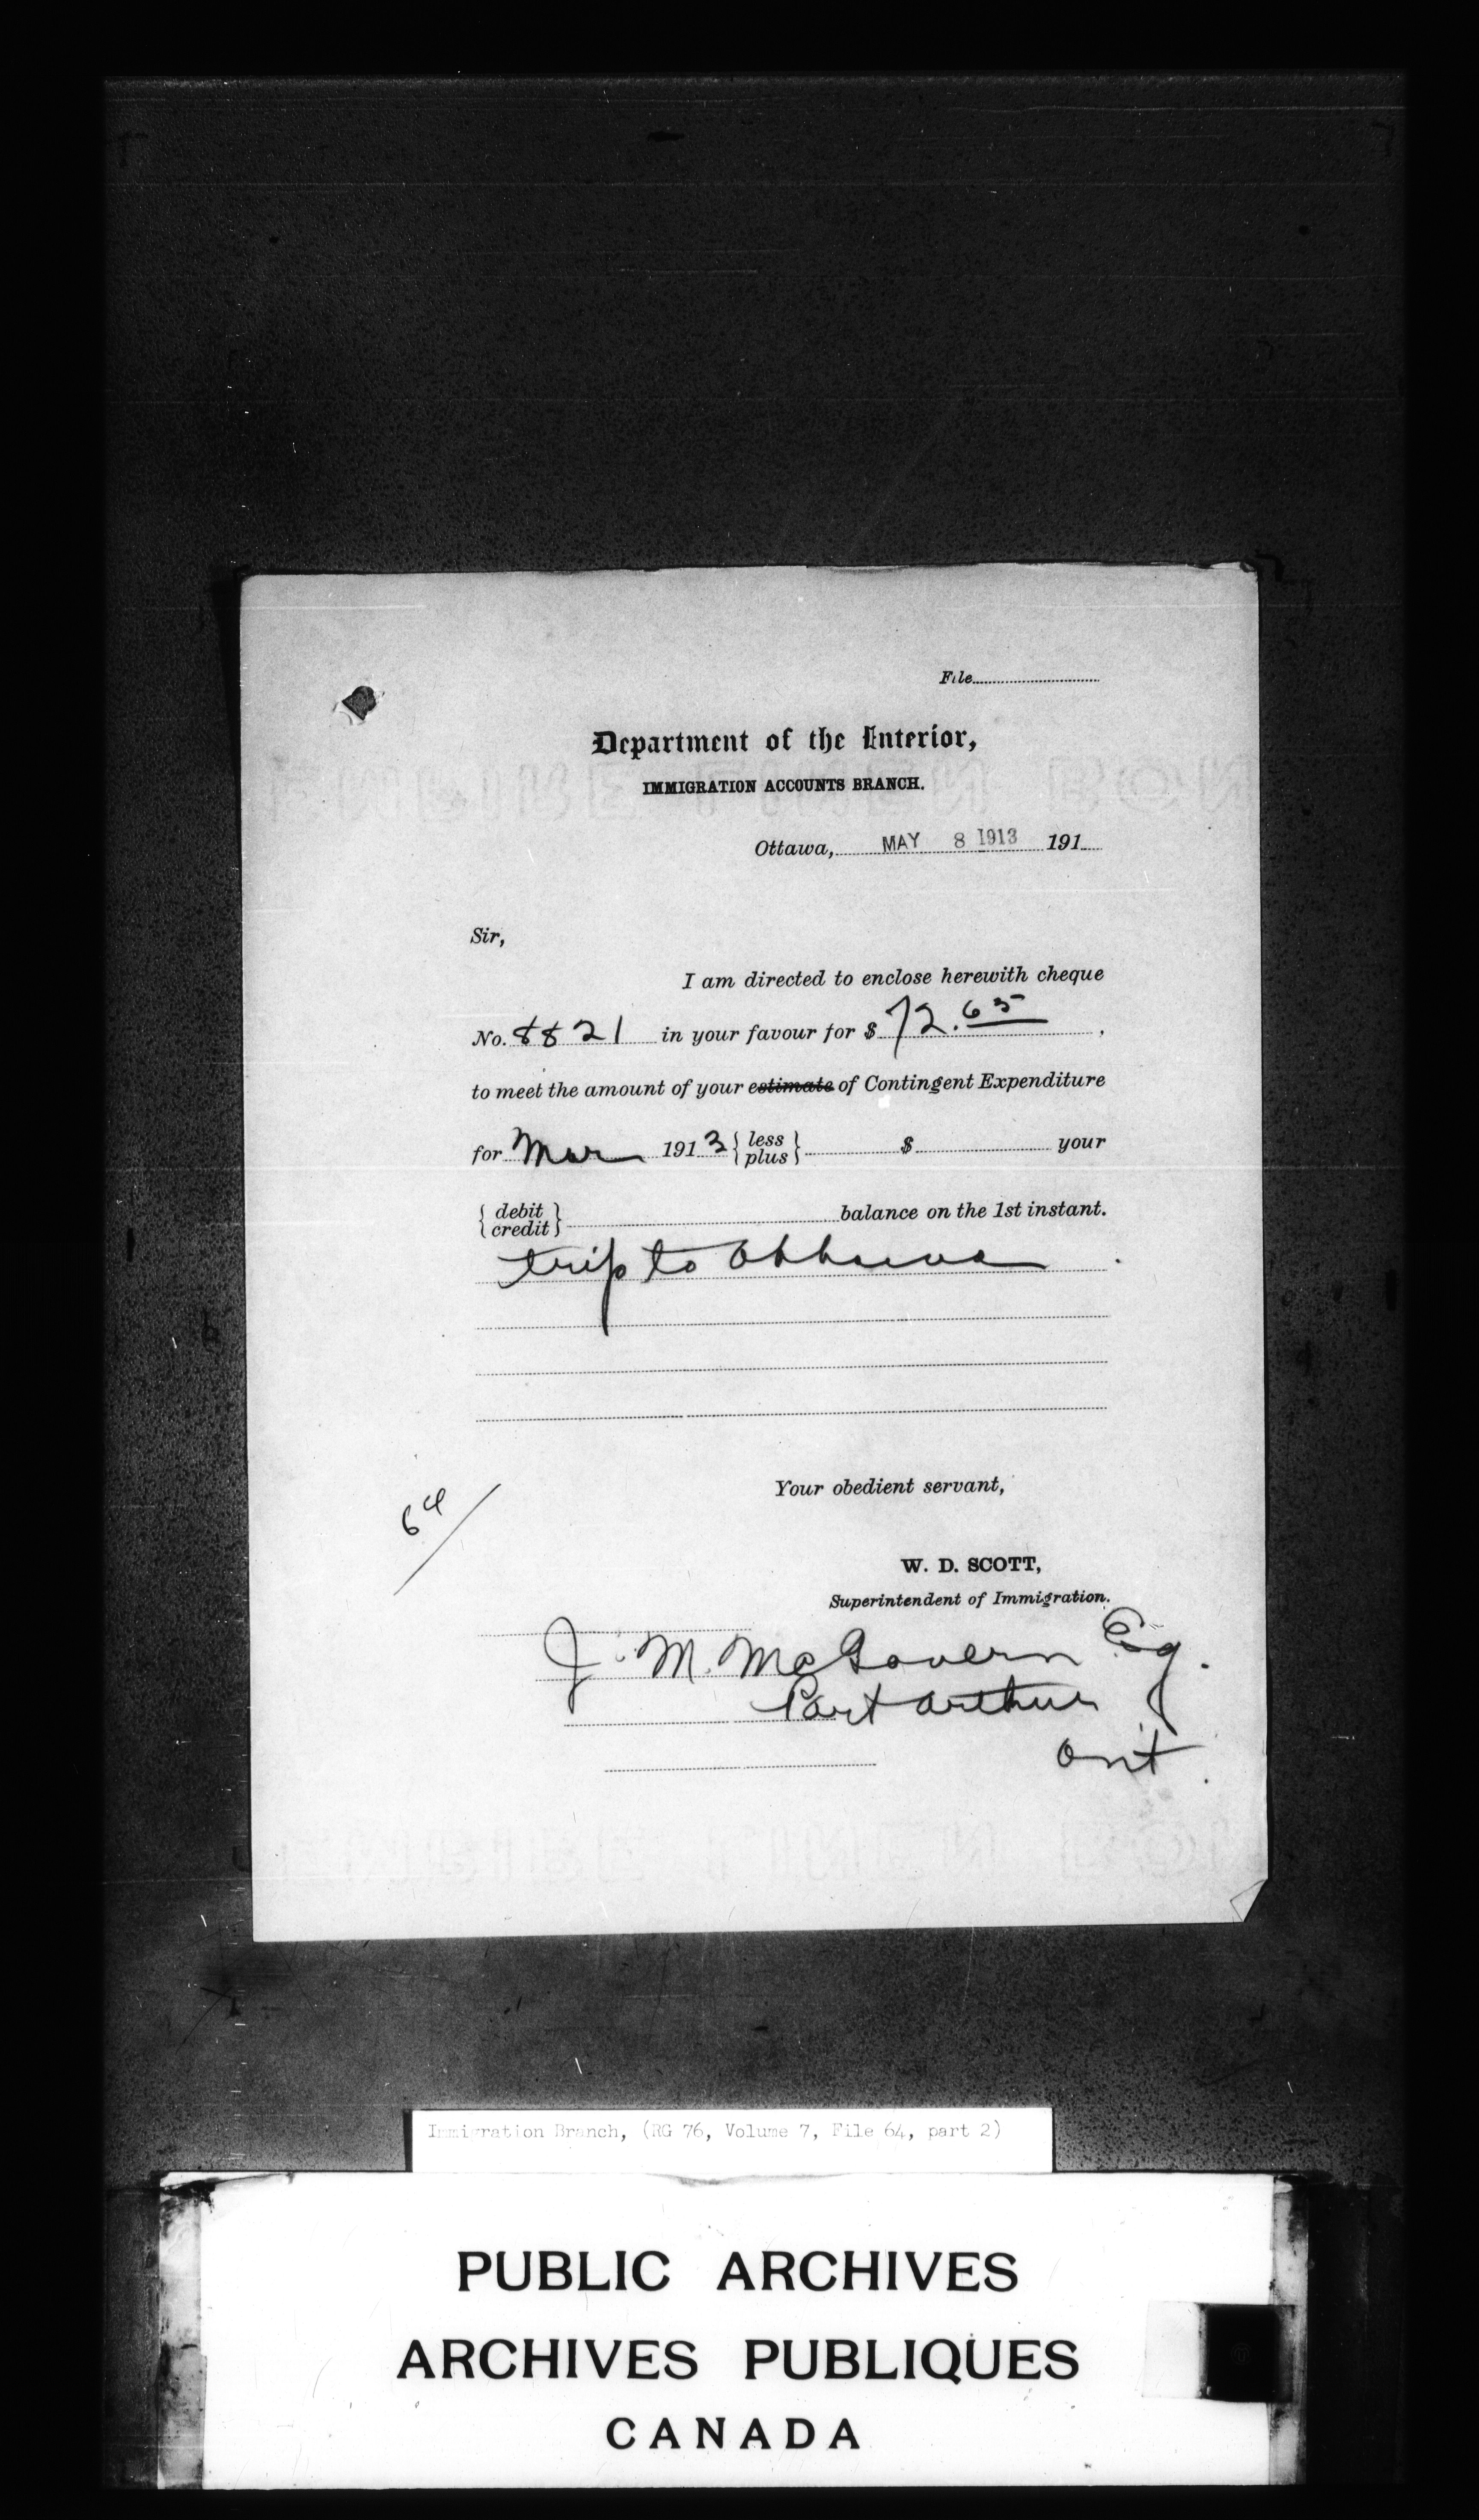 File
Department of the Interior,
IMMIGRATION ACCOUNTS BRANCH.
Ottawa, MAY 8 1913 191
Sir,
I am directed to enclose herewith cheque
No. 8821 in your favour for $ 72.65 ,
to meet the amount of your estimate of Contingent Expenditure
for Mar 1913 { less } $ your
{ plus }
{ debit } balance on the 1st instant.
{ credit }
trip to Ottawa
Your obedient servant,
64
W. D. SCOTT,
Superintendent of Immigration.
J. M. McGovern Esq.
Port Arthur
Ont.
Immigration Branch, (RG 76, Volume 7, File 64, part 2)
PUBLIC ARCHIVES
ARCHIVES PUBLIQUES
CANADA